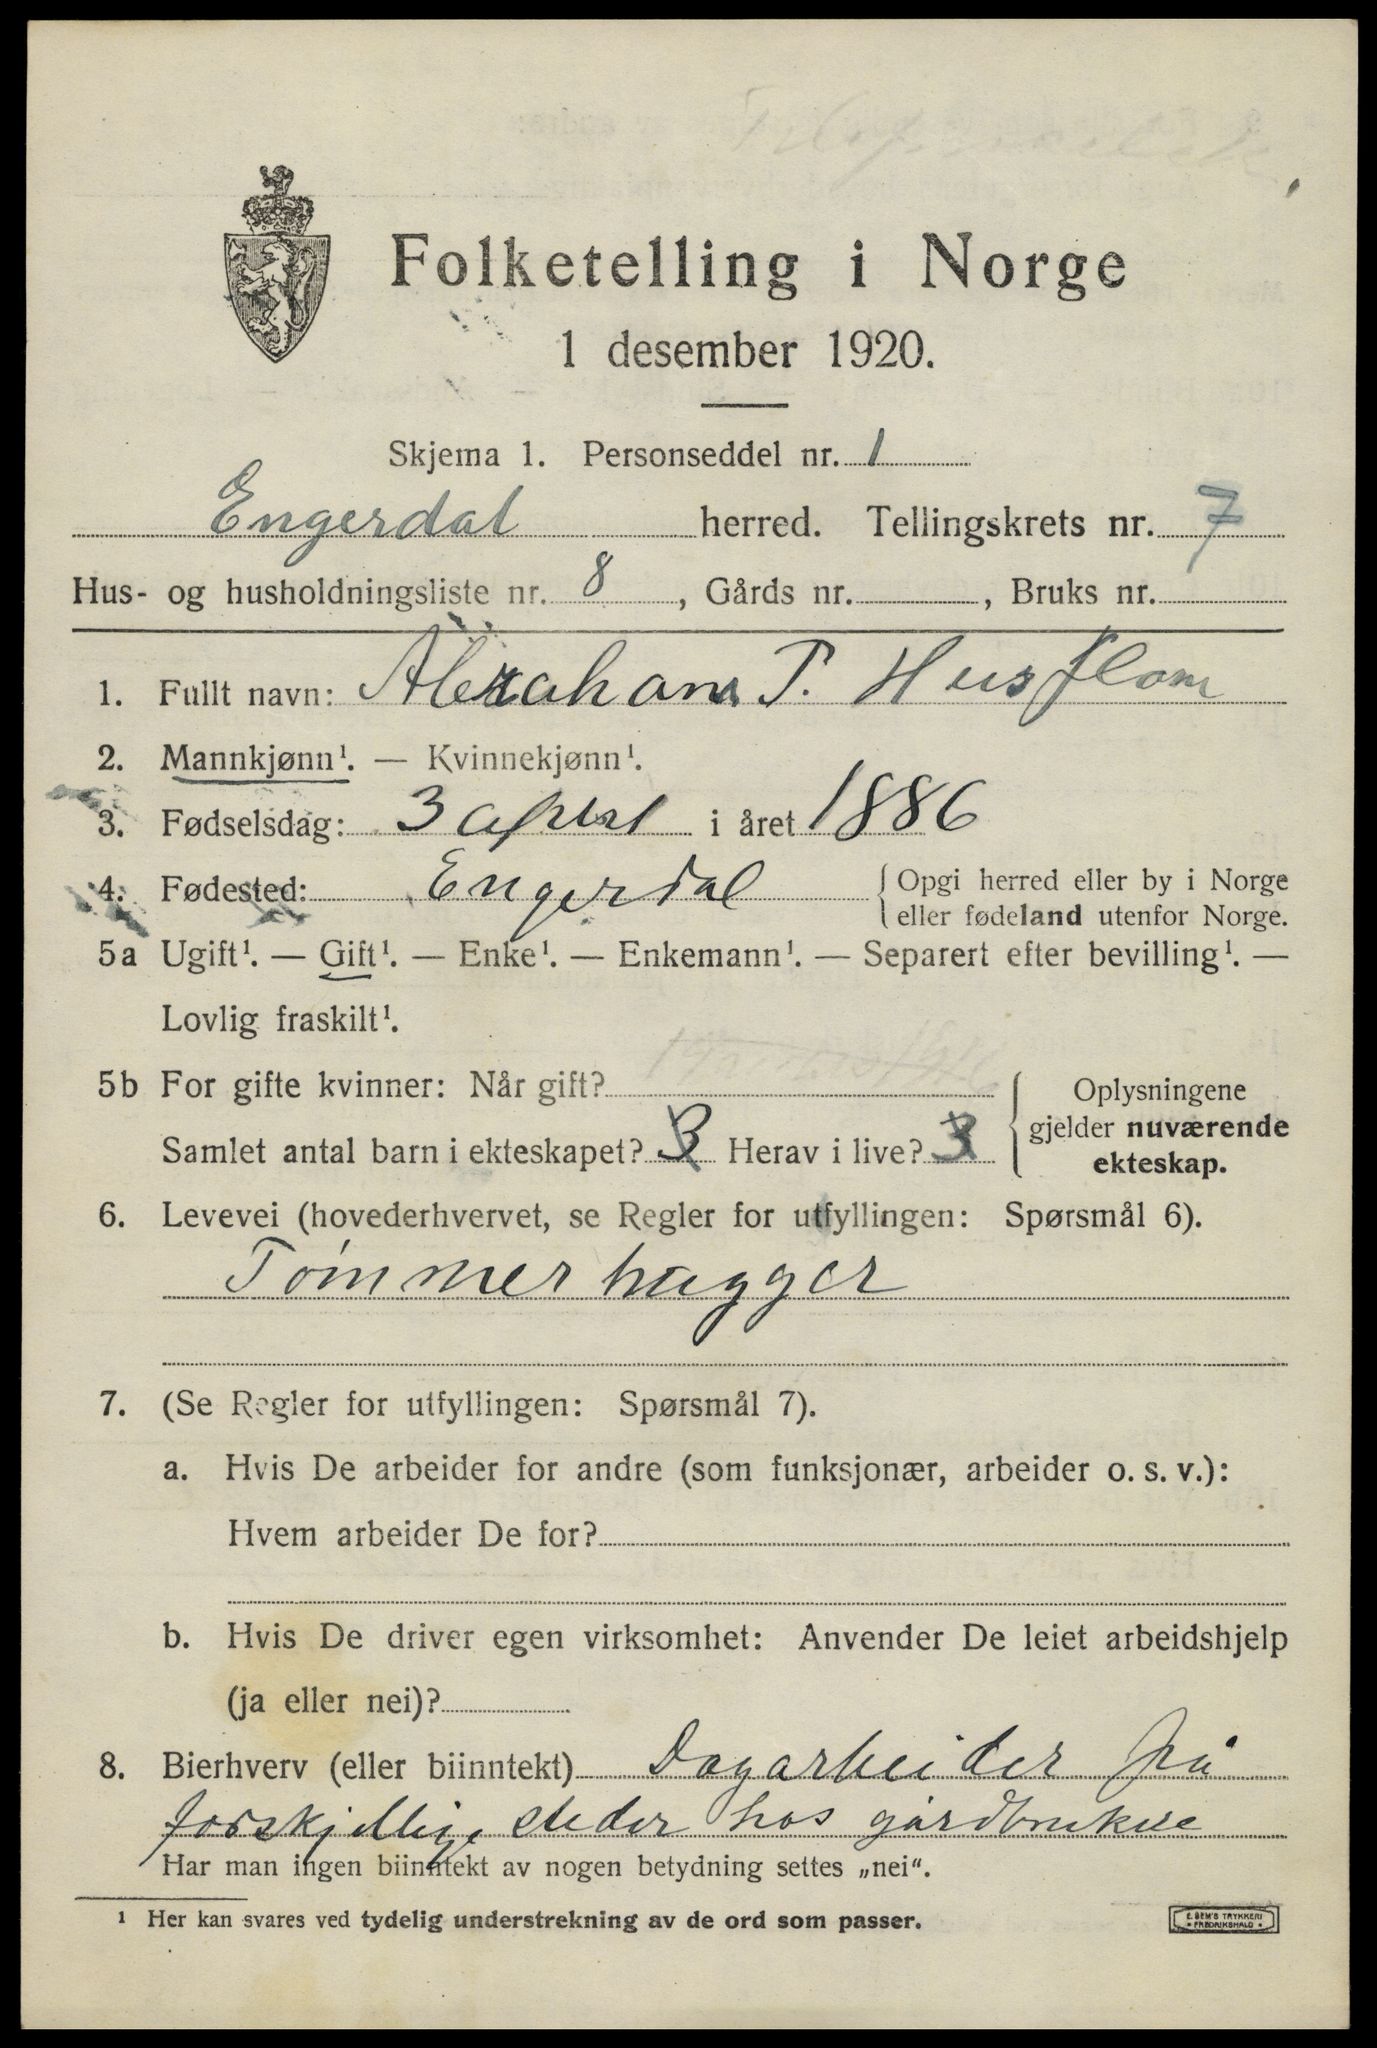 Folketelling i Norge
1 desember 1920.
Skjema 1. Personseddel nr. 1
Engerdal herred. Tellingskrets nr. 7
Hus- og husholdningsliste nr. 8, Gårds nr. , Bruks nr.
1. Fullt navn: Abraham P. Husfloen
2. Mannkjønn¹. — Kvinnekjønn¹.
3. Fødselsdag: 3 april i året 1886
4. Fødested: Engerdal { Opgi herred eller by i Norge
eller fødeland utenfor Norge.
5a Ugift¹. — Gift¹. — Enke¹. — Enkemann¹. — Separert efter bevilling¹. —
Lovlig fraskilt¹.
5b For gifte kvinner: Når gift? { Oplysningene
Samlet antal barn i ekteskapet? 3 Herav i live? 3 gjelder nuværende
ekteskap.
6. Levevei (hovederhvervet, se Regler for utfyllingen: Spørsmål 6).
Tømmerhugger
7. (Se Regler for utfyllingen: Spørsmål 7).
a. Hvis De arbeider for andre (som funksjonær, arbeider o. s. v.):
Hvem arbeider De for?
b. Hvis De driver egen virksomhet: Anvender De leiet arbeidshjelp
(ja eller nei)?
8. Bierhverv (eller biinntekt) Dagarbeider på
forskjellige steder hos gårdbrukere
Har man ingen biinntekt av nogen betydning settes „nei“.
¹ Her kan svares ved tydelig understrekning av de ord som passer.
E. SEM'S TRYKKERI
• FREDRIKSHALD •